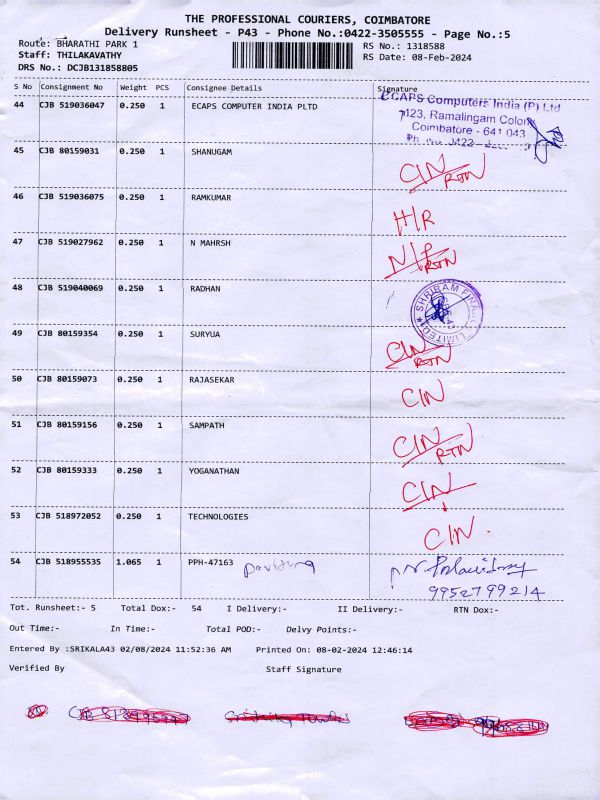 THE PROFESSIONAL COURIERS, COIMBATORE
Delivery Runsheet - P43 - Phone No.:0422-3505555 - Page No.:5
Route: BHARATHI PARK 1
RS No.: 1318588
Staff: THILAKAVATHY
RS Date: 08-Feb-2024
DRS No.: DCJB131858805
S No Consignment No Weight PCS Consignee Details Signature
44 CJB 519036047 0.250 1 ECAPS COMPUTER INDIA PLTD
ECAPS Computers India (P) Ltd
123, Ramalingam Colony
Coimbatore - 641 043
45 CJB 80159031 0.250 1 SHANUGAM CIN RTN
46 CJB 519036075 0.250 1 RAMKUMAR H/R
47 CJB 519027962 0.250 1 N MAHRSH RTN
48 CJB 519040069 0.250 1 RADHAN
SHRIRAM FINANCE LIMITED
49 CJB 80159354 0.250 1 SURYUA CIN RTN
50 CJB 80159073 0.250 1 RAJASEKAR CIN
51 CJB 80159156 0.250 1 SAMPATH CIN RTN
52 CJB 80159333 0.250 1 YOGANATHAN CIN
53 CJB 518972052 0.250 1 TECHNOLOGIES CIN
54 CJB 518955535 1.065 1 PPH-47163
9952799214
Tot. Runsheet:- 5 Total Dox:- 54 I Delivery:- II Delivery:- RTN Dox:-
Out Time:- In Time:- Total POD:- Delvy Points:-
Entered By :SRIKALA43 02/08/2024 11:52:36 AM Printed On: 08-02-2024 12:46:14
Verified By Staff Signature
CJB